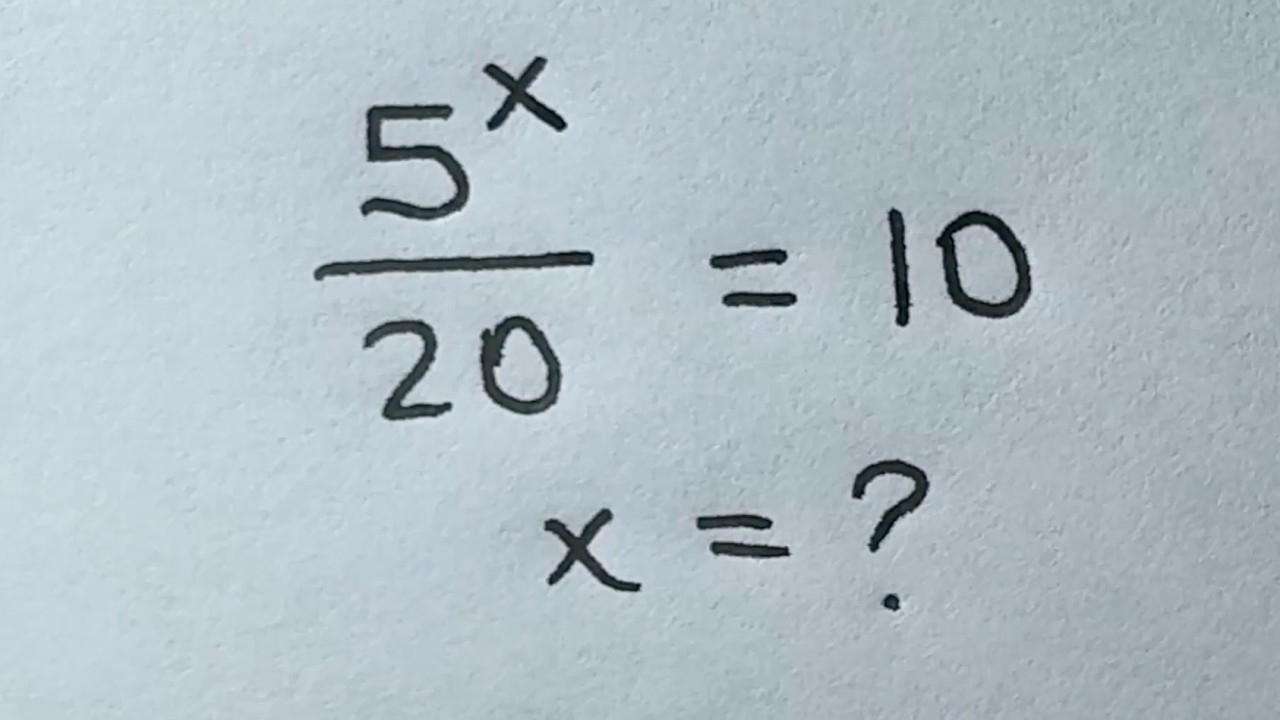 5^x
20
= 10
x = ?